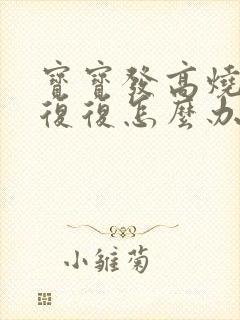 寶寶發高燒
復復怎麼办
小雏菊